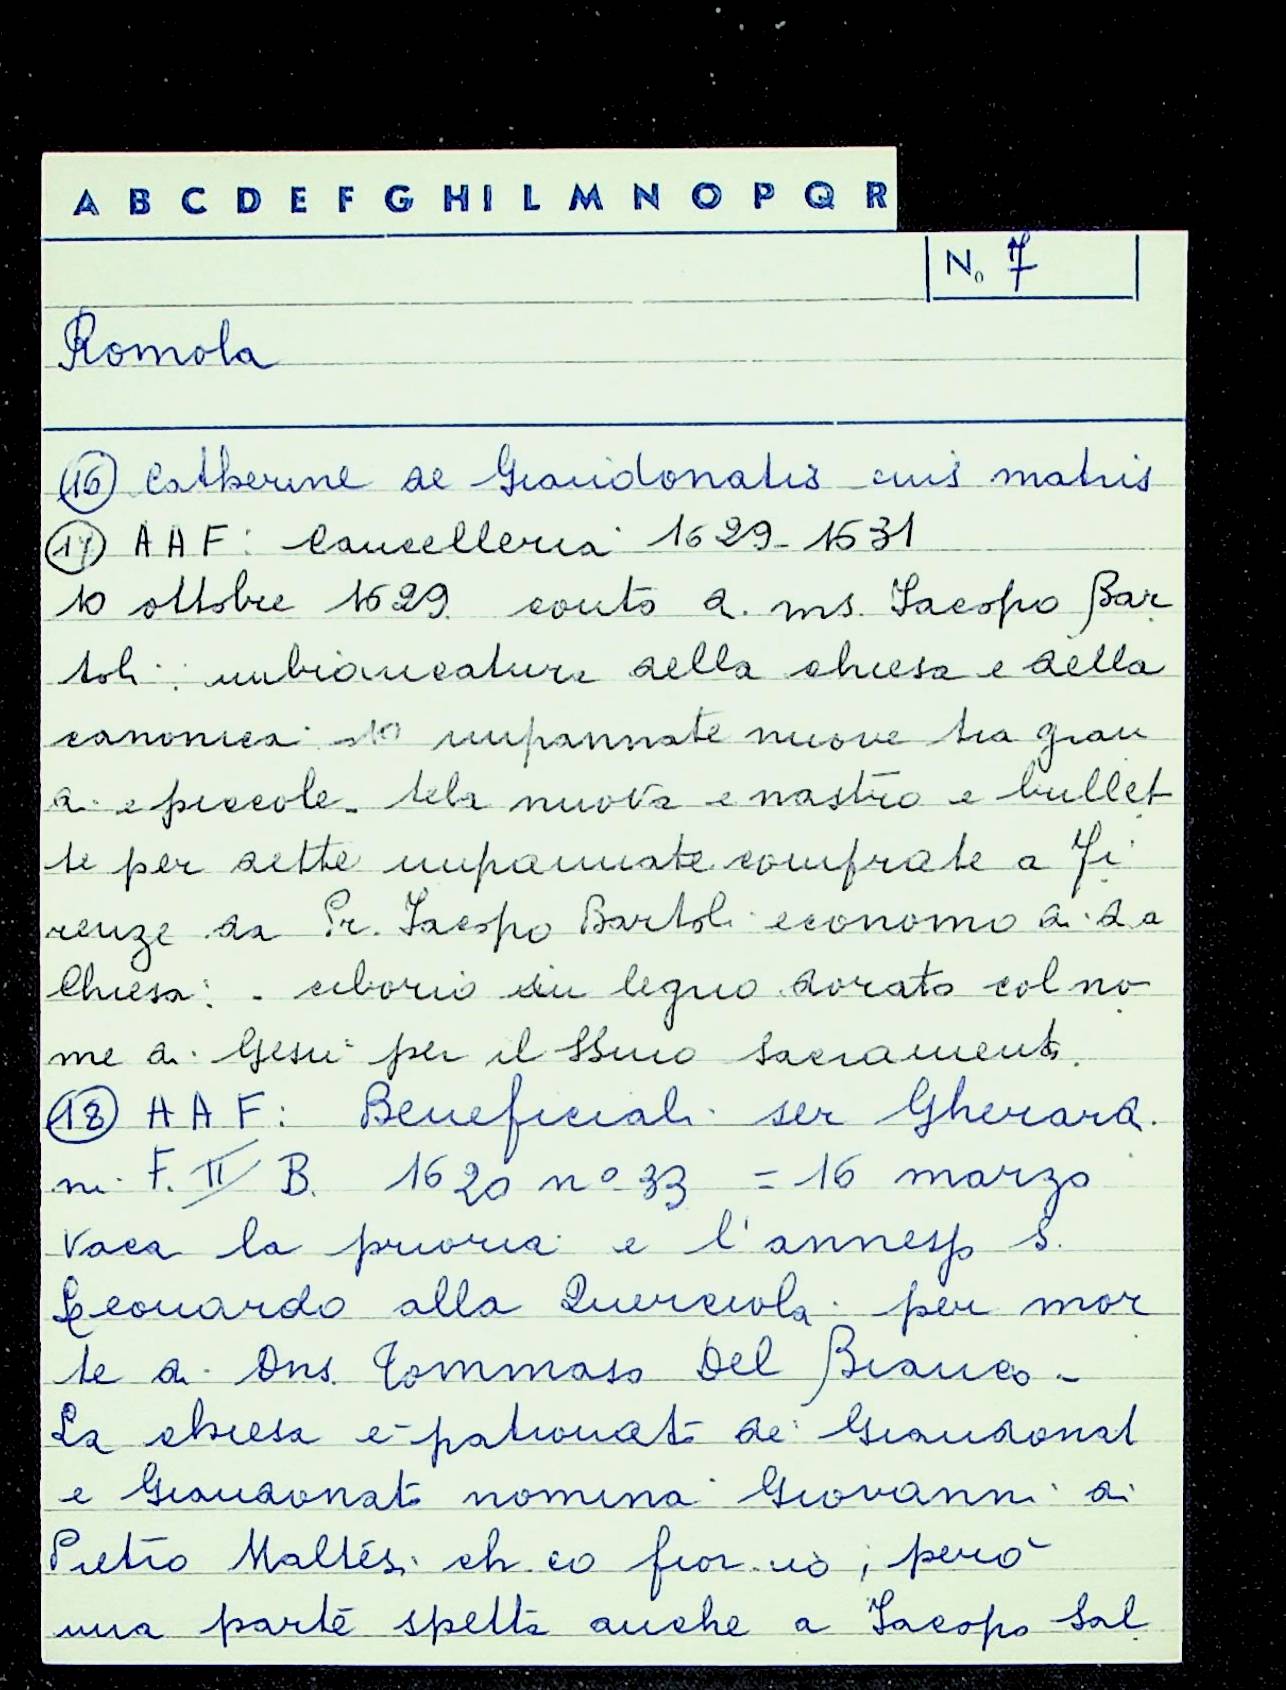 A B C D E F G H I L M N O P Q R
No 7
Romola
(16) Catherine de Giandonatis eius matris
(17) A A F: Cancelleria 1629-1631
10 ottobre 1629 conto di ms. Jacopo Bar
toli: imbiancatura della chiesa e della
canonica: 10 impannate nuove tra gran
di e piccole - tela nuova e nastro e bullet
te per dette impannate comprate a Fi
renze da Pr. Jacopo Bartoli economo di da
Chiesa: - ciborio di legno dorato col no
me di Gesù per il SSmo Sacramento.
(18) A A F: Beneficiali ser Gherardi
ni F. II B. 1620 no 33 = 16 marzo
Vaca la prioria e l'annesso S.
Leonardo alla Querciola per mor
te di Dns. Tommaso Del Bianco -
La chiesa è patronato de' Giandonati
e Giandonato nomina Giovanni di
Pietro Maltesi ch. co fior. no; però
una parte spetta anche a Jacopo Sal